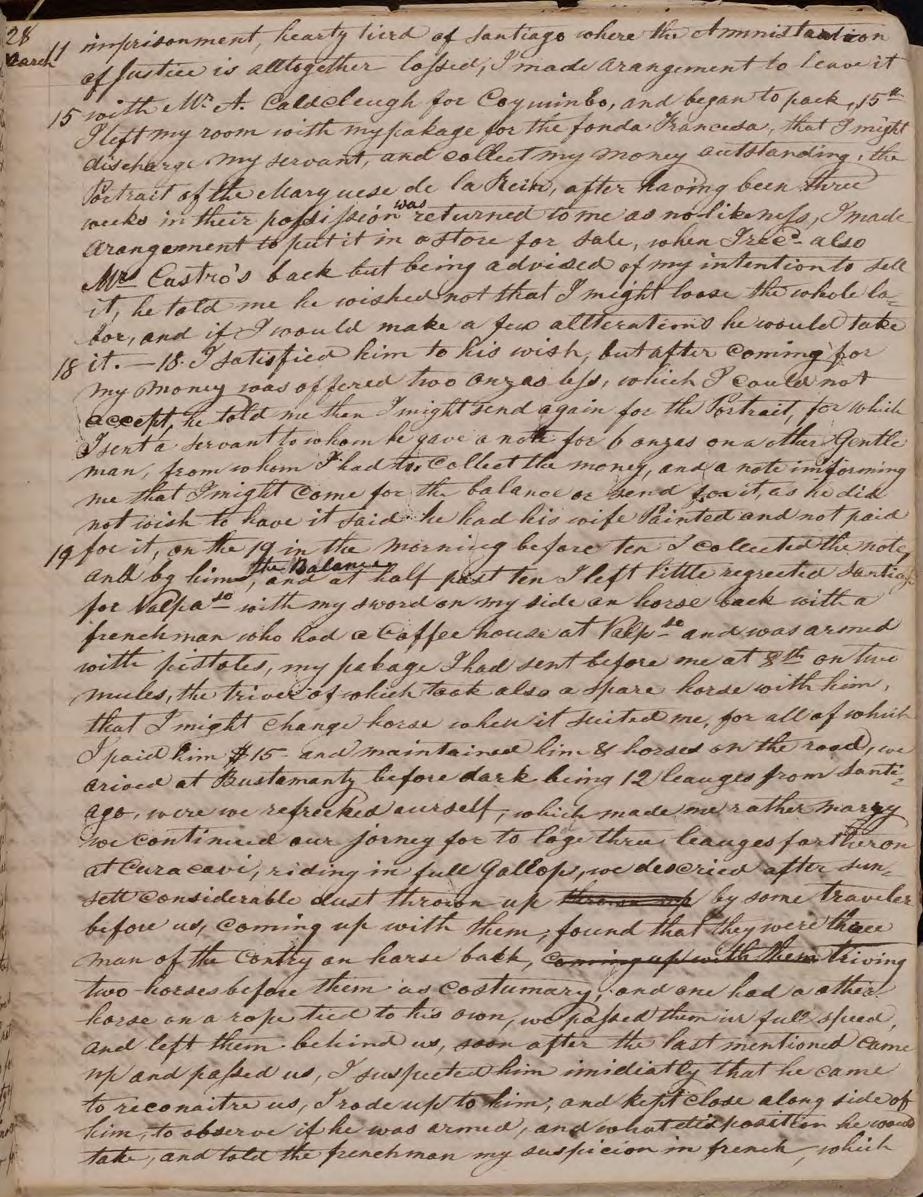 28
March 11 imprisonment, hearty tierd of Santiago where the Aministration
of Justice is alltogether lossed, I made arangement to leave it
15 with Mr. A. Caldcleugh for Coquimbo, and began to pack, 15th
I left my room with my pakage for the fonda Francesa, that I might
discharge my servant, and collect my money outstanding, the
Portrait of the Marquese de la Rein, after having been three
weeks in their possission was returned to me as no likeness, I made
arangement to put it in a store for sale, when I recd. also
Mrs Castro's back but being advised of my intention to sell
it, he told me he wished not that I might loose the whole la=
bor, and if I would make a few allterations he would take
18 it. — 18. I satisfied him to his wish, but after coming for
my money was offered two onzas less, which I could not
accept, he told me then I might send again for the Portrait, for which
I sent a servant to whom he gave a note for 6 onzas on a other Gentle
man, from whom I had to collect the money, and a note informing
me that I might come for the balance or send for it, as he did
not wish to have it said he had his wife Painted and not paid
19 for it, on the 19 in the morning before ten I collected the note
and by him the Balance, and at half past ten I left little regreted Santiago
for Valpaso with my sword on my side on horse back with a
frenchman who had a Coffee house at Valpso and was armed
with pistoles, my pakage I had sent before me at 8th on two
mules, the triver of which took also a spare horse with him,
that I might change horse when it suited me, for all of which
I paid him $15 and maintained him & horses on the road, we
arived at Bustamanty before dark being 12 leauges from Santi=
ago, were we refreshed ourself, which made me rather marry
we continued our jorney for to loge three leauges fartheron
at Curacavi, riding in full Gallop, we descried after sun=
sett considerable dust thrown up thrown up by some traveler
before us, coming up with them, found that they were three
man of the contry on horse bakk, coming up with them triving
two horses before them as costumary, and one had a other
horse on a rope tied to his own, we passed them in full speed,
and left them behind us, soon after the last mentioned came
up and passed us, I suspected him imidiatly that he came
to reconaitre us, I rode up to him, and kept close along side of
him, to observe if he was armed, and what disposition he would
take, and told the frenchman my suspicion in french, which